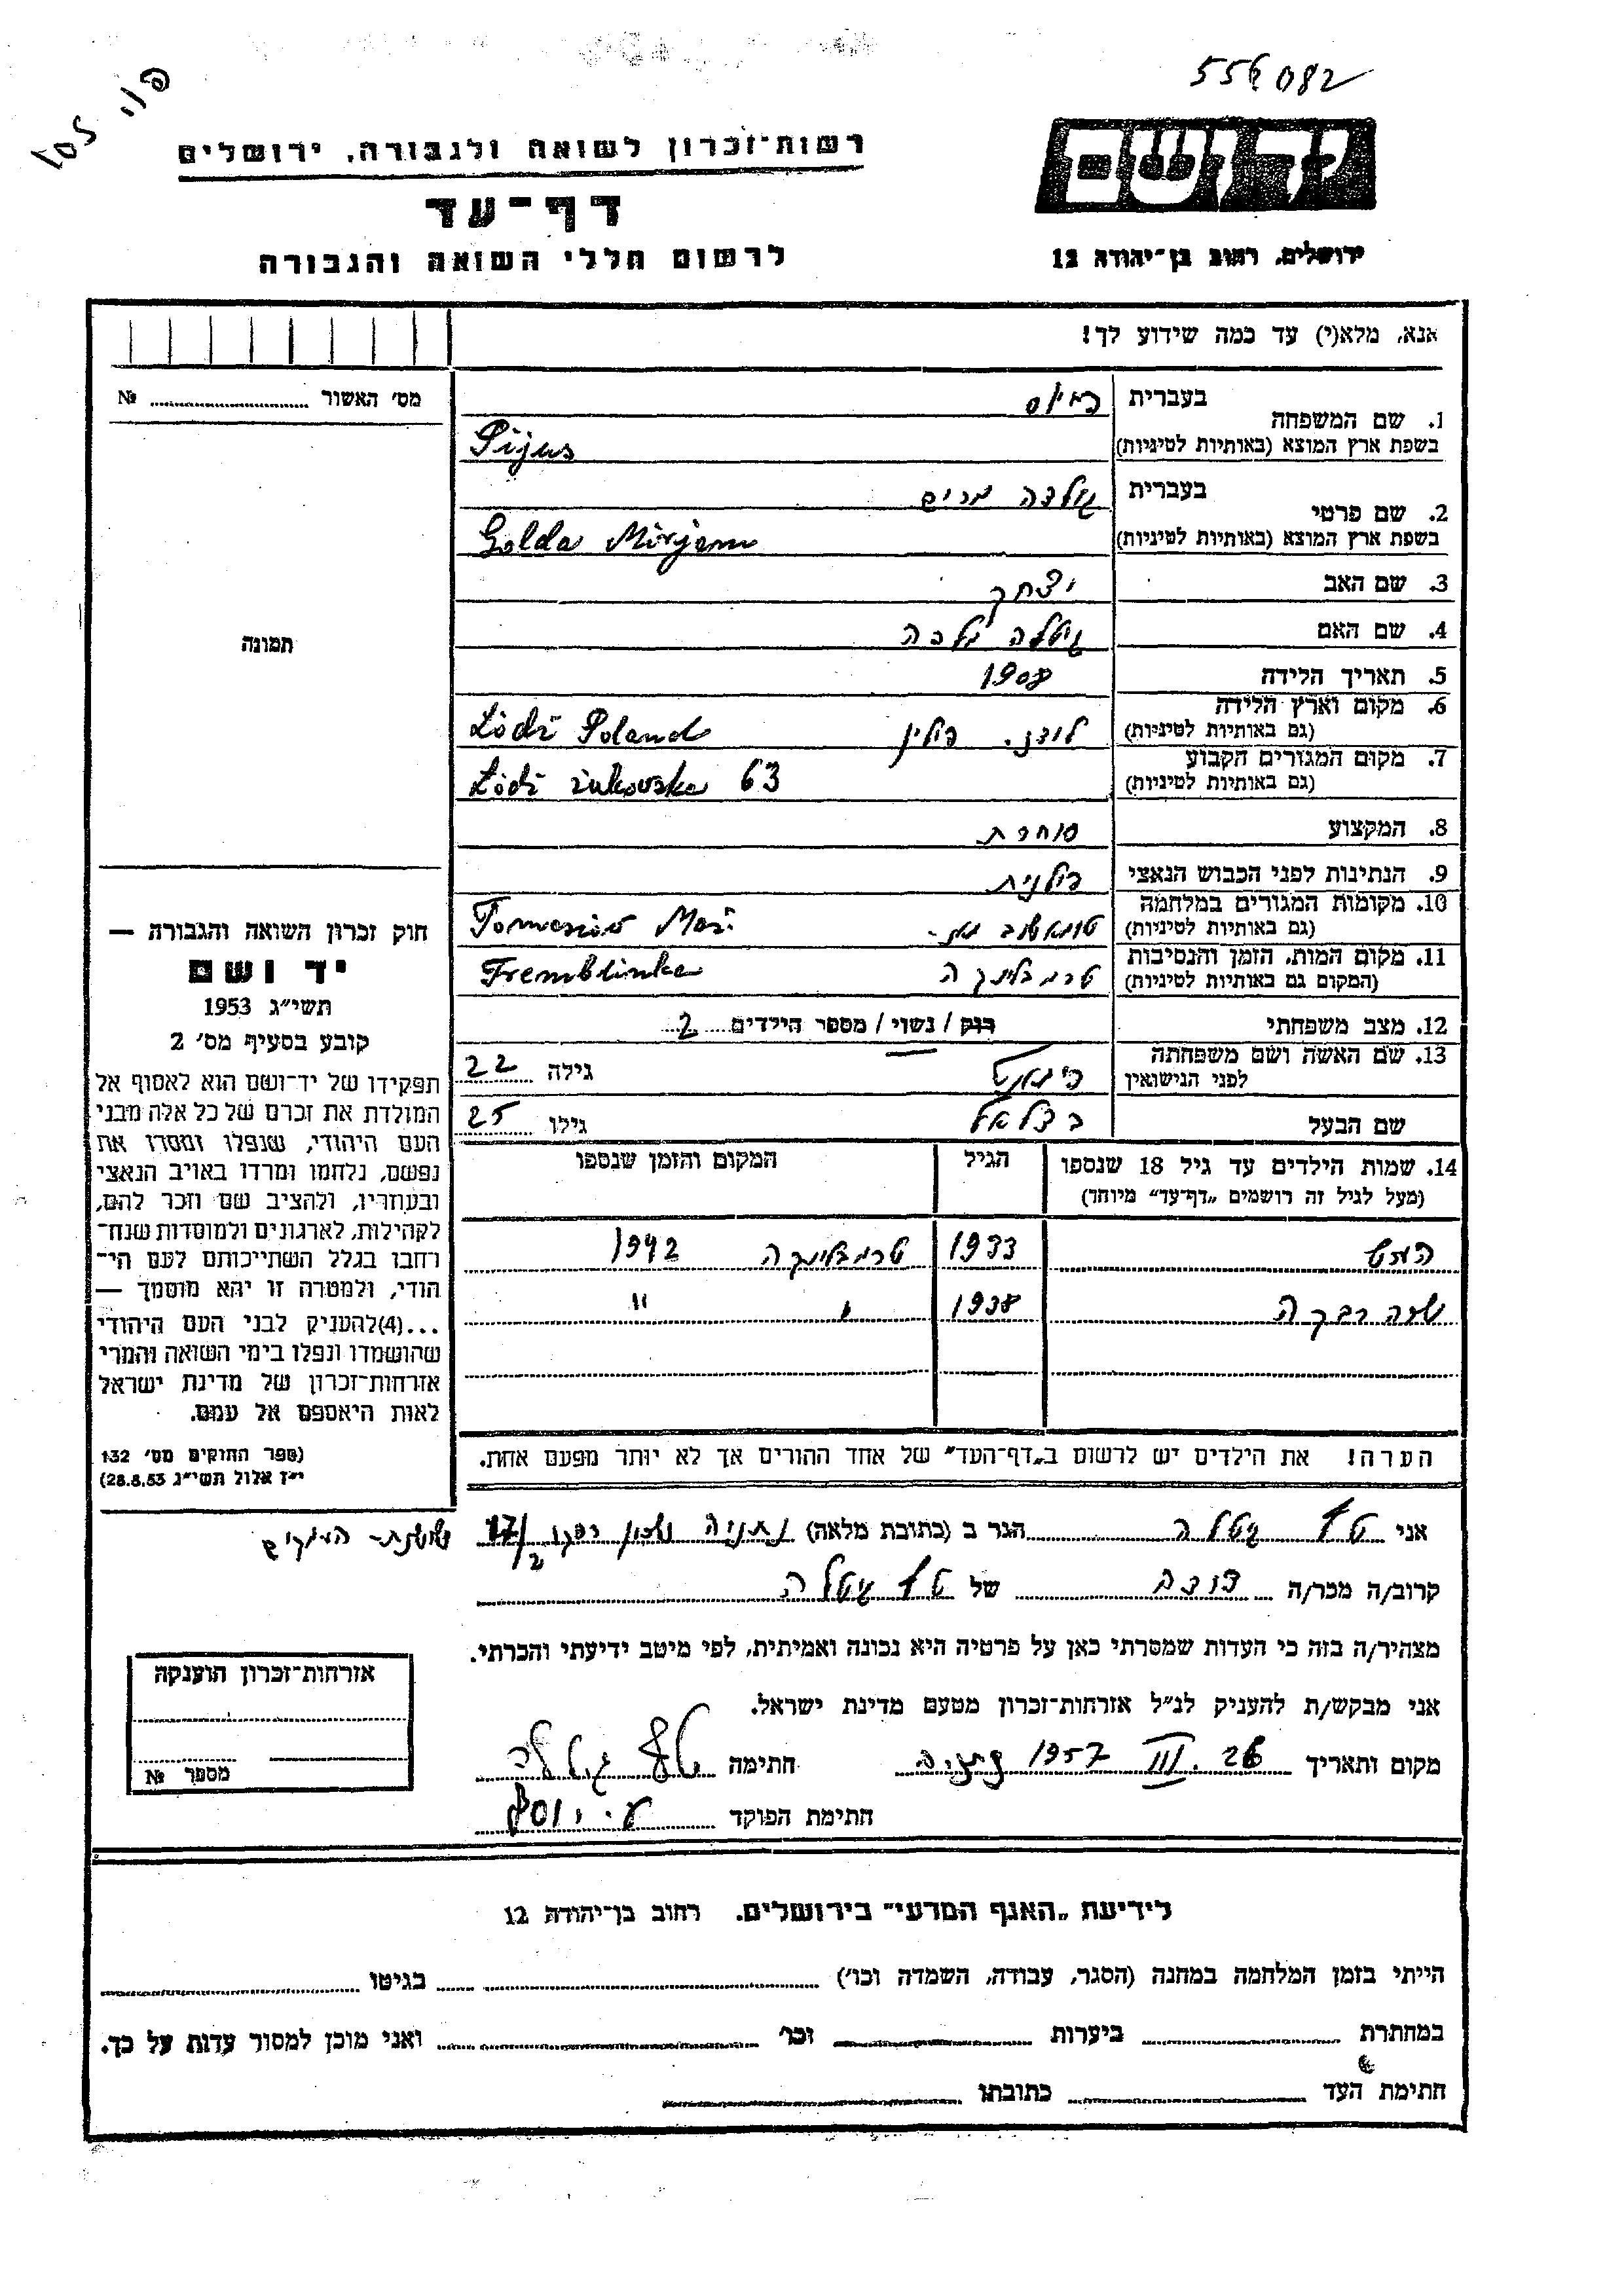 556082
יד ושם
רשות־זכרון לשואה ולגבורה, ירושלים
דף־עד
לרשום חללי השואה והגבורה
ירושלים, רחוב בן־יהודה 12
אנא, מלא(י) עד כמה שידוע לך!
מס׳ האשור № 
1. שם המשפחה
בעברית
בשפת ארץ המוצא (באותיות לטיניות) Pijus
2. שם פרטי
בעברית גולדה מרים
בשפת ארץ המוצא (באותיות לטיניות) Golda Mirjam
3. שם האב יצחק
4. שם האם גיטלה מלכה
5. תאריך הלידה 1908
6. מקום וארץ הלידה לודז. פולין Łódź Poland
(גם באותיות לטיניות)
7. מקום המגורים הקבוע Łódź 63
(גם באותיות לטיניות)
8. המקצוע סוחרת
9. הנתינות לפני הכבוש הנאצי פולנית
10. מקומות המגורים במלחמה Maz.
(גם באותיות לטיניות)
11. מקום המות, הזמן והנסיבות טרמבלינקה Tremblinka
(המקום גם באותיות לטיניות)
12. מצב משפחתי רוק / נשוי / מספר הילדים 2
13. שם האשה ושם משפחתה
לפני הנישואין גילה 22
שם הבעל בצלאל גילו 25
14. שמות הילדים עד גיל 18 שנספו הגיל המקום והזמן שנספו
(מעל לגיל זה רושמים „דף־עד״ מיוחד)
1933 טרמבלינקה 1942
רבקה 1938 " "
הערה! את הילדים יש לרשום ב„דף־העד״ של אחד ההורים אך לא יותר מפעם אחת.
תמונה
חוק זכרון השואה והגבורה —
יד ושם
תשי״ג 1953
קובע בסעיף מס׳ 2
תפקידו של יד־ושם הוא לאסוף אל
המולדת את זכרם של כל אלה מבני
העם היהודי, שנפלו ומסרו את
נפשם, נלחמו ומרדו באויב הנאצי
ובעוזריו, ולהציב שם וזכר להם,
לקהילות, לארגונים ולמוסדות שנח־
רחבו בגלל השתייכותם לעם הי־
הודי, ולמטרה זו יהא מוסמך —
...(4)להעניק לבני העם היהודי
שהושמדו ונפלו בימי השואה והמרי
אזרחות־זכרון של מדינת ישראל
לאות היאספם אל עמם.
(ספר החוקים מס׳ 132
י״ז אלול תשי״ג 28.8.53)
אני גיטלה הגר ב (כתובת מלאה) נתניה שכון 17/2
קרוב/ה מכר/ה דודה של גיטלה
מצהיר/ה בזה כי העדות שמסרתי כאן על פרטיה היא נכונה ואמיתית, לפי מיטב ידיעתי והכרתי.
אני מבקש/ת להעניק לנ״ל אזרחות־זכרון מטעם מדינת ישראל.
מקום ותאריך 26. III 1957 נתניה חתימה
חתימת הפוקד
אזרחות־זכרון הוענקה
מספר №
לידיעת „האגף המדעי״ בירושלים. רחוב בן־יהודה 12
הייתי בזמן המלחמה במחנה (הסגר, עבודה, השמדה וכו׳) בגיטו
במחתרת ביערות וכו׳ ואני מוכן למסור עדות על כך.
חתימת העד כתובתו